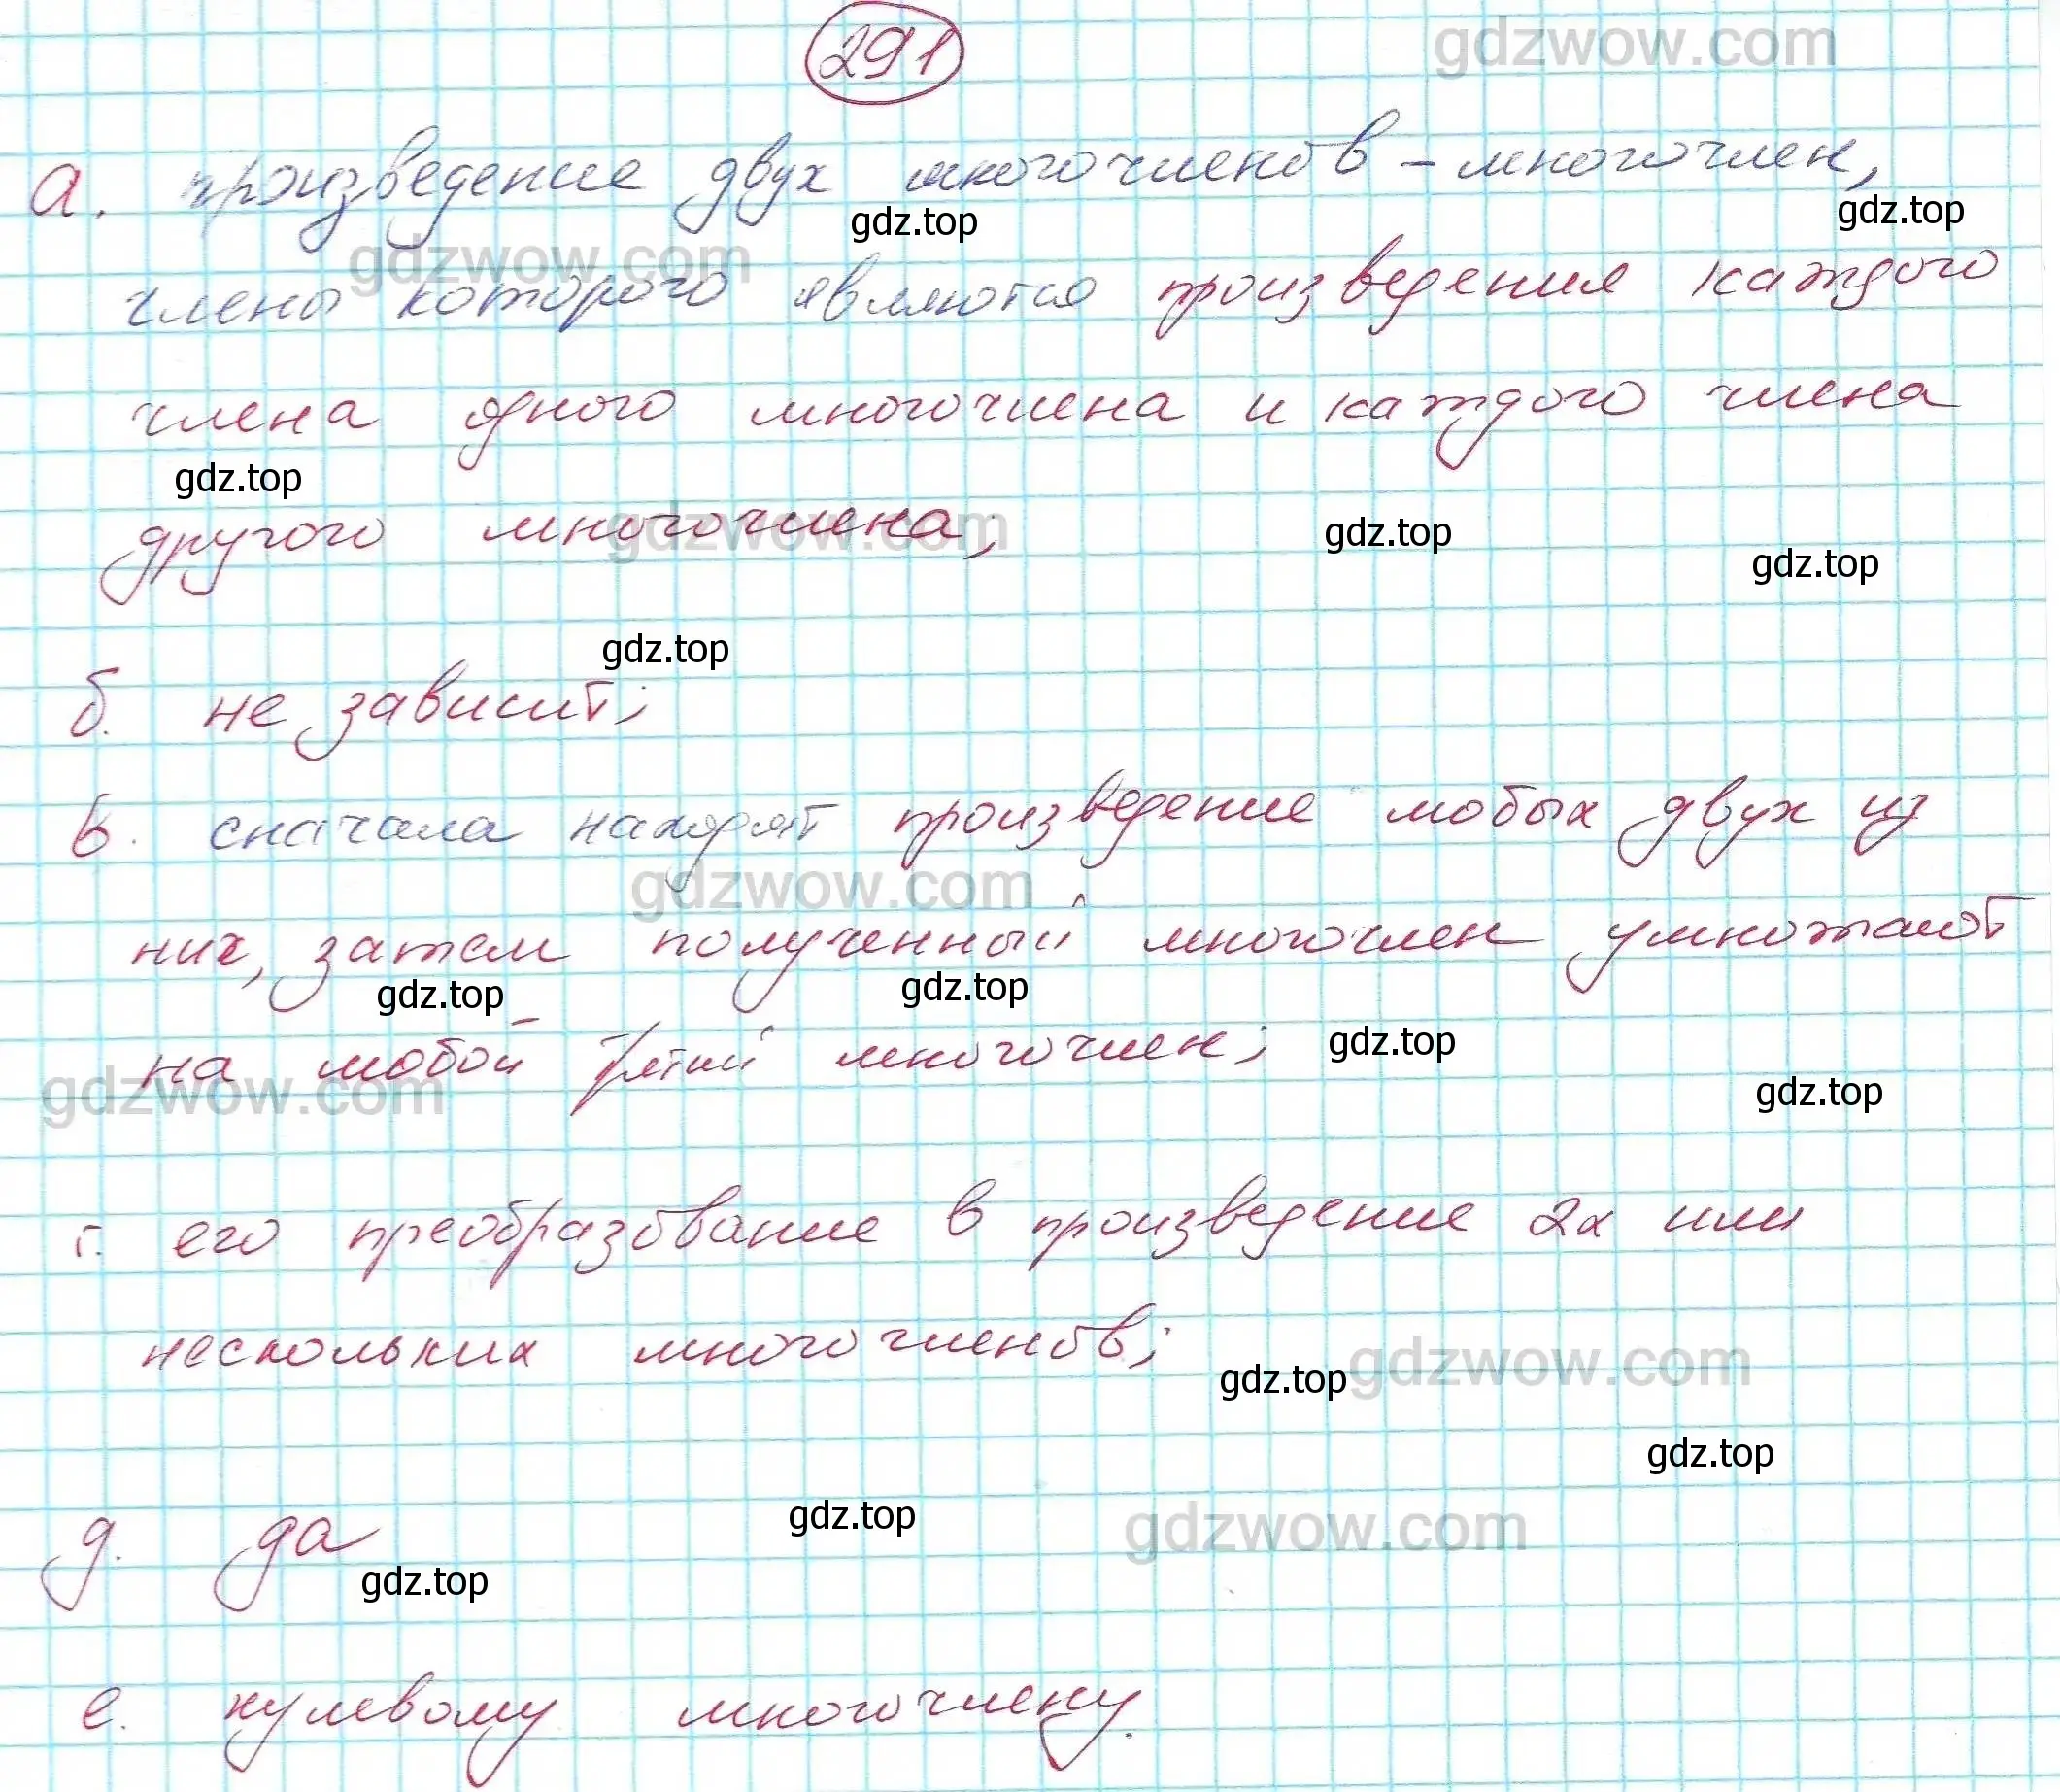 291
gdzwow.com
а. произведение двух многочленов – многочлен,
gdz.top
gdz.top
gdzwow.com
члены которого являются произведения каждого
члена одного многочлена и каждого члена
gdz.top
другого многочлена;
gdzwow.com
gdz.top
gdz.top
gdz.top
б. не зависит;
в. сначала находят произведение любых двух из
gdzwow.com
них, затем полученный многочлен умножают
gdz.top
gdz.top
на любой третий многочлен;
gdz.top
gdzwow.com
gdz.top
г. его преобразование в произведение 2х или
нескольких многочленов;
gdz.top
gdzwow.com
gdz.top
gdz.top
gdzwow.com
д. да
gdz.top
е. нулевому многочлену.